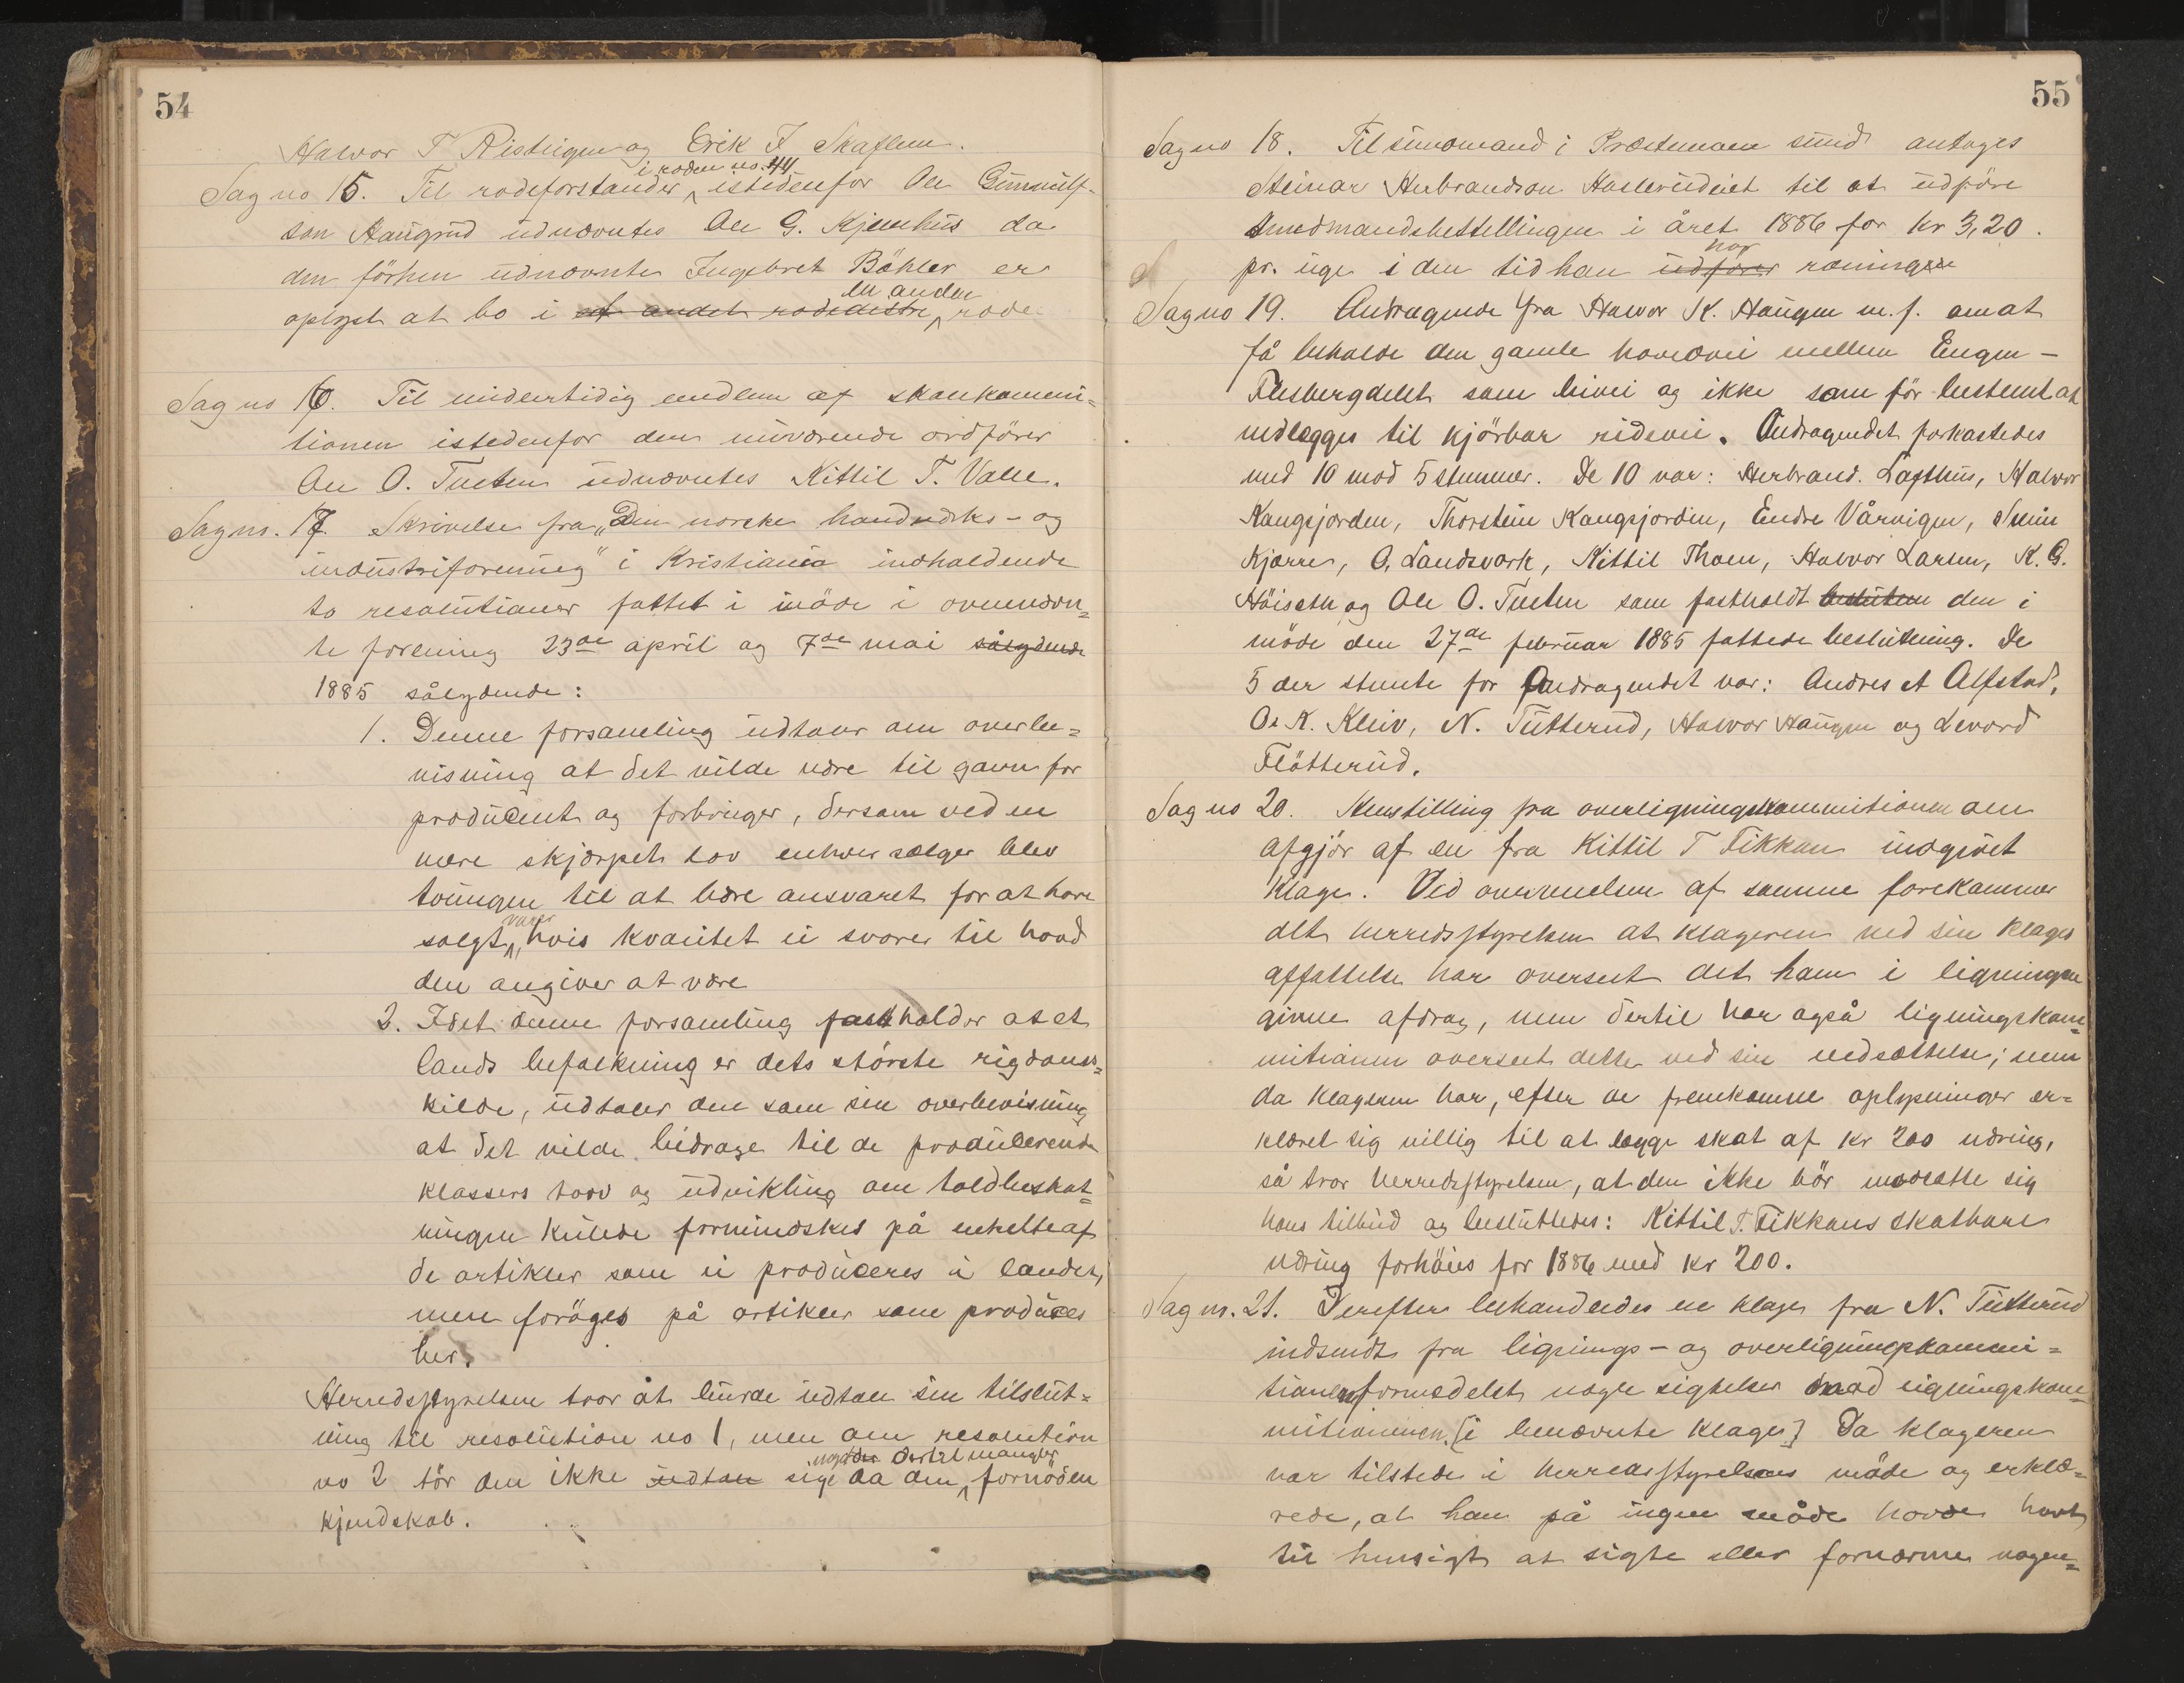 54
Halvor T Ristugen og Erik J. Skaflem.
i roden no. 44
Sag no 15. Til rodeforstander istedenfor Ole Gunnulf-
sön Haugrud udnævntes Ole G. Kjemhus da
den förhen udnævnte Ingebret Böhler er
en anden
oplyst at bo i et andet rodedistr rode
Sag no 16. Til midlertidig medlem af skolekommi=
tionen istedenfor den nuværende ordförer
Ole O. Tveten udnævntes Kittil T. Valle.
Sag no. 17. Skrivelse fra "Den norske handverks- og
industriforening" i Kristiania indholdende
to resolutioner fattet i möde i ovennævn=
te forening 23de april og 7de mai sålydende
1885 sålydende:
1. Denne forsamling udtaler om overbe=
visning at det vilde være til gavn for
producent og forbruger, dersom ved en
mere skjærpet lov enhver sælger blev
tvungen til at bære ansvaret for at have
varer
solgt, hvis kvalitet ei svarer til hvad
den angives at være
2. Idet denne forsamling fastholder at et
lands befolkning er dets störste rigdoms=
kilde, udtaler den som sin overbevisning
at det vilde bidrage til de producerende
klassers tarv og udvikling om toldbeskat=
ningen kunde formindskes på enkelte af
de artikler som ei produceres i landet,
men foröges på artikler som produces
her.
Herredsstyrelsen tror at burde udtale sin tilslut=
ning til resolution no 1, men om resolution
dertil mangler
no 2 tör den ikke udtale sige da den fornöden
kjendskab.
55
Sag no 18. Til sundmand i Præstemoen sund antages
Steinar Herbrandson Haslerudeiet til at udföre
sundmandsbestillingen i året 1886 for kr 3,20.
har
pr. uge i den tid han udförer roningen
Sag no 19. Andragende fra Halvor K. Haugen m. f. om at
få beholde den gamle hovedvei mellem Engen-
Flesbergdelet som bivei og ikke som för bestemt at
nedlægges til kjörbar ridevei. Andragendet forkastedes
med 10 mod 5 stemmer. De 10 var: Herbrand. Lofthus, Halvor
Kongsjorden, Thorstein Kongsjorden, Endre Vårvigen, Svein
Kjærre, O. Landsverk, Kittil Thoen, Halvor Larsen, K. G.
Höiseth og Ole O. Tveten som fastholdt beslutten den i
möde den 27de februar 1885 fattede beslutning. De
5 der stemte for Andragendet var: Andres A Alfstad,
Ole K. Kleiv, N. Tutterud, Halvor Haugen og Levord
Flötterud.
Sag no 20. Henstilling fra overligningskommitionen om
afgjör af en fra Kittil T Fikkan indgivet
klage. Ved overveielsen af samme forekommer
det herredsstyrelsen at klageren ved sin klages
affattelse har overseet det ham i ligningen
givne afdrag, men dertil har også ligningskom=
mitionen overseet dette ved sin nedsættelse; men
da klageren har, efter de fremkomne oplysninger er=
klæret sig villig til at lægge skat af kr 200 næring,
så tror herredsstyrelsen, at den ikke bör modsætte sig
hans tilbud og besluttedes: Kittil T. Fikkans skatbare
næring forhöies for 1886 med kr 200.
Sag no. 21. Derefter behandledes en klage fra N. Tutterud
indsendt fra lignings- og overligningskommi=
tionen formedelst nogle sigtelser mod ligningskom=
mitionen. [i benævnte klage] Da klageren
var tilstede i herredsstyrelsens möde og erklæ=
rede, at han på ingen måde havde havt
til hensigt at sigte eller fornærme nogen=